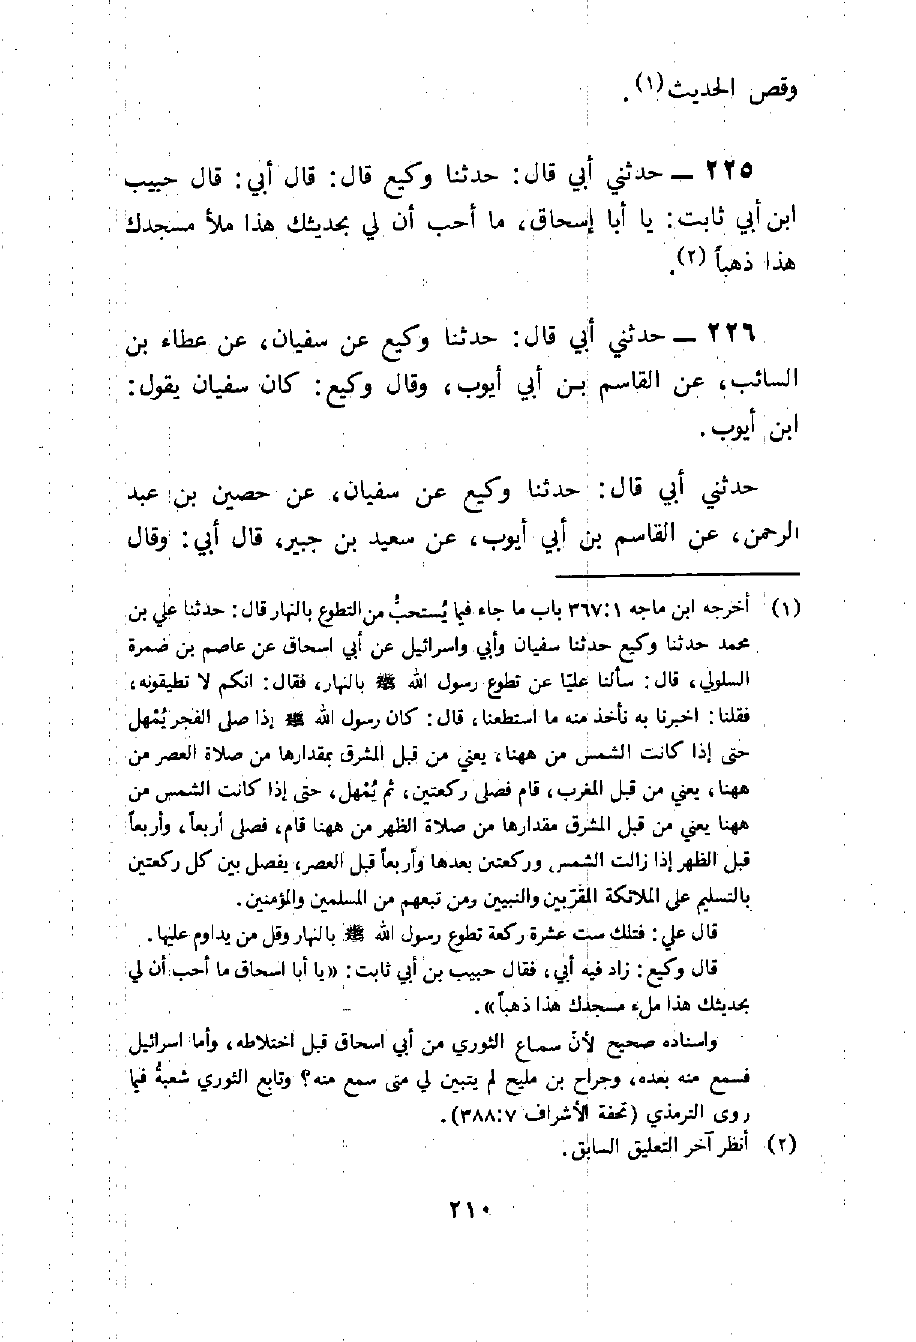 وقص الحديث(١).
٢٢٥ ــ حدثني أبي قال: حدثنا وكيع قال: قال أبي: قال حبيب
ابن أبي ثابت: يا أبا إسحاق، ما أحب أن لي بحديثك هذا ملأ مسجدك
هذا ذهباً (٢).
٢٢٦ ــ حدثني أبي قال: حدثنا وكيع عن سفيان، عن عطاء بن
السائب، عن القاسم بن أبي أيوب، وقال وكيع: كان سفيان يقول:
ابن أيوب.
حدثني أبي قال: حدثنا وكيع عن سفيان، عن حصين بن عبد
الرحمن، عن القاسم بن أبي أيوب، عن سعيد بن جبير، قال أبي: وقال
(١) أخرجه ابن ماجه ٣٦٧:١ باب ما جاء فيما يُستحبُّ من التطوع بالنهار قال: حدثنا علي بن
محمد حدثنا وكيع حدثنا سفيان وأبي واسرائيل عن أبي اسحاق عن عاصم بن ضمرة
السلولي، قال: سألنا عليّا عن تطوع رسول الله ﷺ بالنهار، فقال: انكم لا تطيقونه،
فقلنا: اخبرنا به نأخذ منه ما استطعنا، قال: كان رسول الله ﷺ إذا صلى الفجر يُمهل
حتى إذا كانت الشمس من ههنا، يعني من قبل المشرق بمقدارها من صلاة العصر من
ههنا، يعني من قبل المغرب، قام فصلى ركعتين، ثم يُمْهل، حتى إذا كانت الشمس من
ههنا يعني من قبل المشرق مقدارها من صلاة الظهر من ههنا قام، فصلى أربعاً، وأربعاً
قبل الظهر إذا زالت الشمس وركعتين بعدها وأربعاً قبل العصر، يفصل بين كل ركعتين
بالتسليم على الملائكة المقرّبين والنبيين ومن تبعهم من المسلمين والمؤمنين.
قال علي: فتلك ست عشرة ركعة تطوع رسول الله ﷺ بالنهار وقل من يداوم عليها.
قال وكيع: زاد فيه أبي، فقال حبيب بن أبي ثابت: «يا أبا اسحاق ما أحب أن لي
بحديثك هذا ملء مسجدك هذا ذهباً».
واسناده صحيح لأنّ سماع الثوري من أبي اسحاق قبل اختلاطه، وأما اسرائيل
فسمع منه بعده، وجراح بن مليح لم يتبين لي متى سمع منه؟ وتابع الثوري شعبةُ فيما
روى الترمذي (تحفة الأشراف ٣٨٨:٧).
(٢) أنظر آخر التعليق السابق.
٢١٠